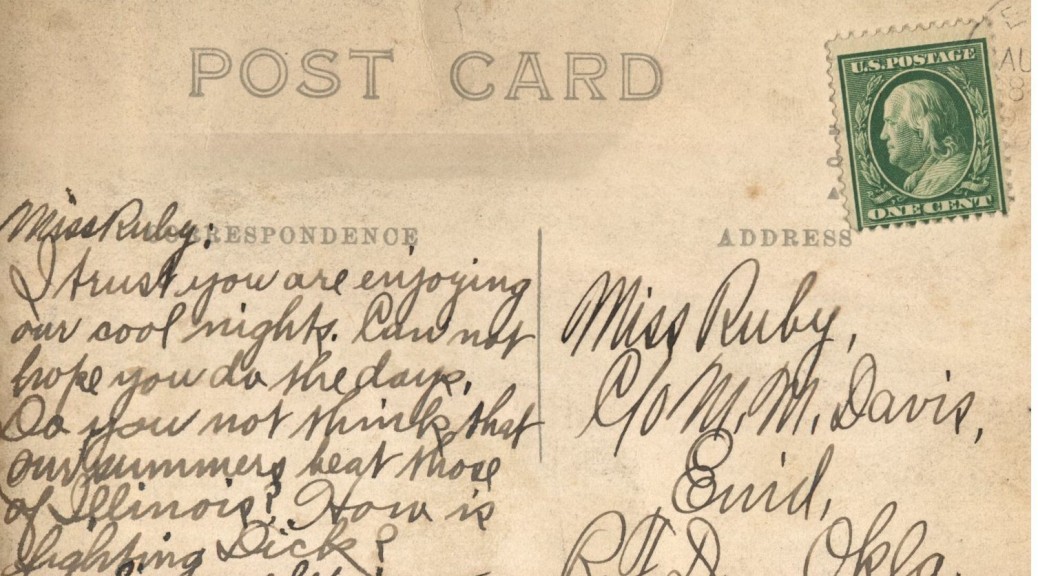 POST CARD
U.S. POSTAGE
ONE CENT
AU
8
CORRESPONDENCE
Miss Ruby;
I trust you are enjoying
our cool nights. Can not
hope you do the days.
Do you not think that
our summers beat those
of Illinois? How is
fighting Dick?
ADDRESS
Miss Ruby,
C/o M. M. Davis,
Enid,
R.F.D. Okla.